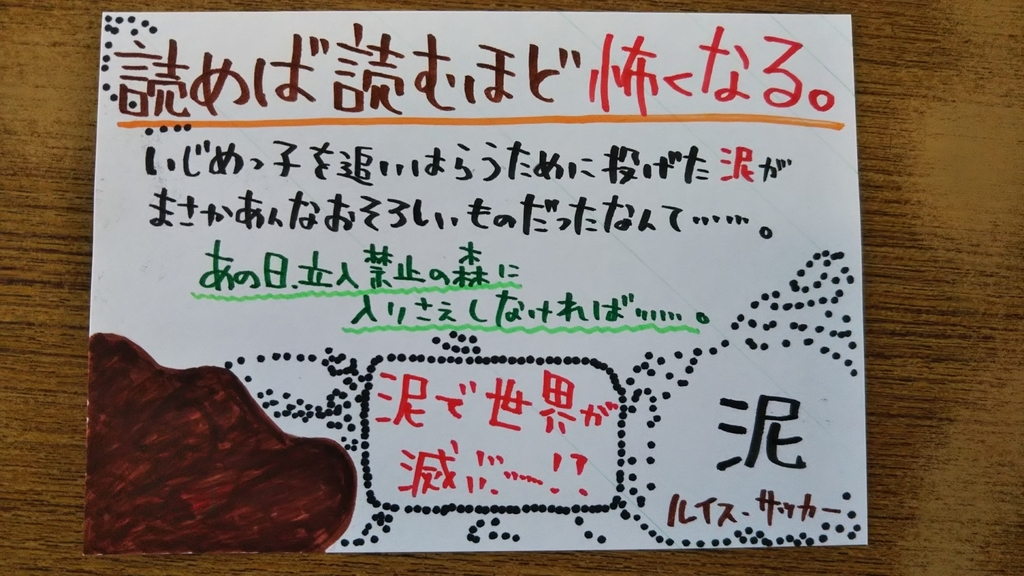 読めば読むほど怖くなる。
いじめっ子を追いはらうために投げた泥が
まさかあんなおそろしいものだったなんて……。
あの日、立入禁止の森に
入りさえしなければ……。
泥で世界が
滅ぶ……!?
泥
ルイス・サッカー